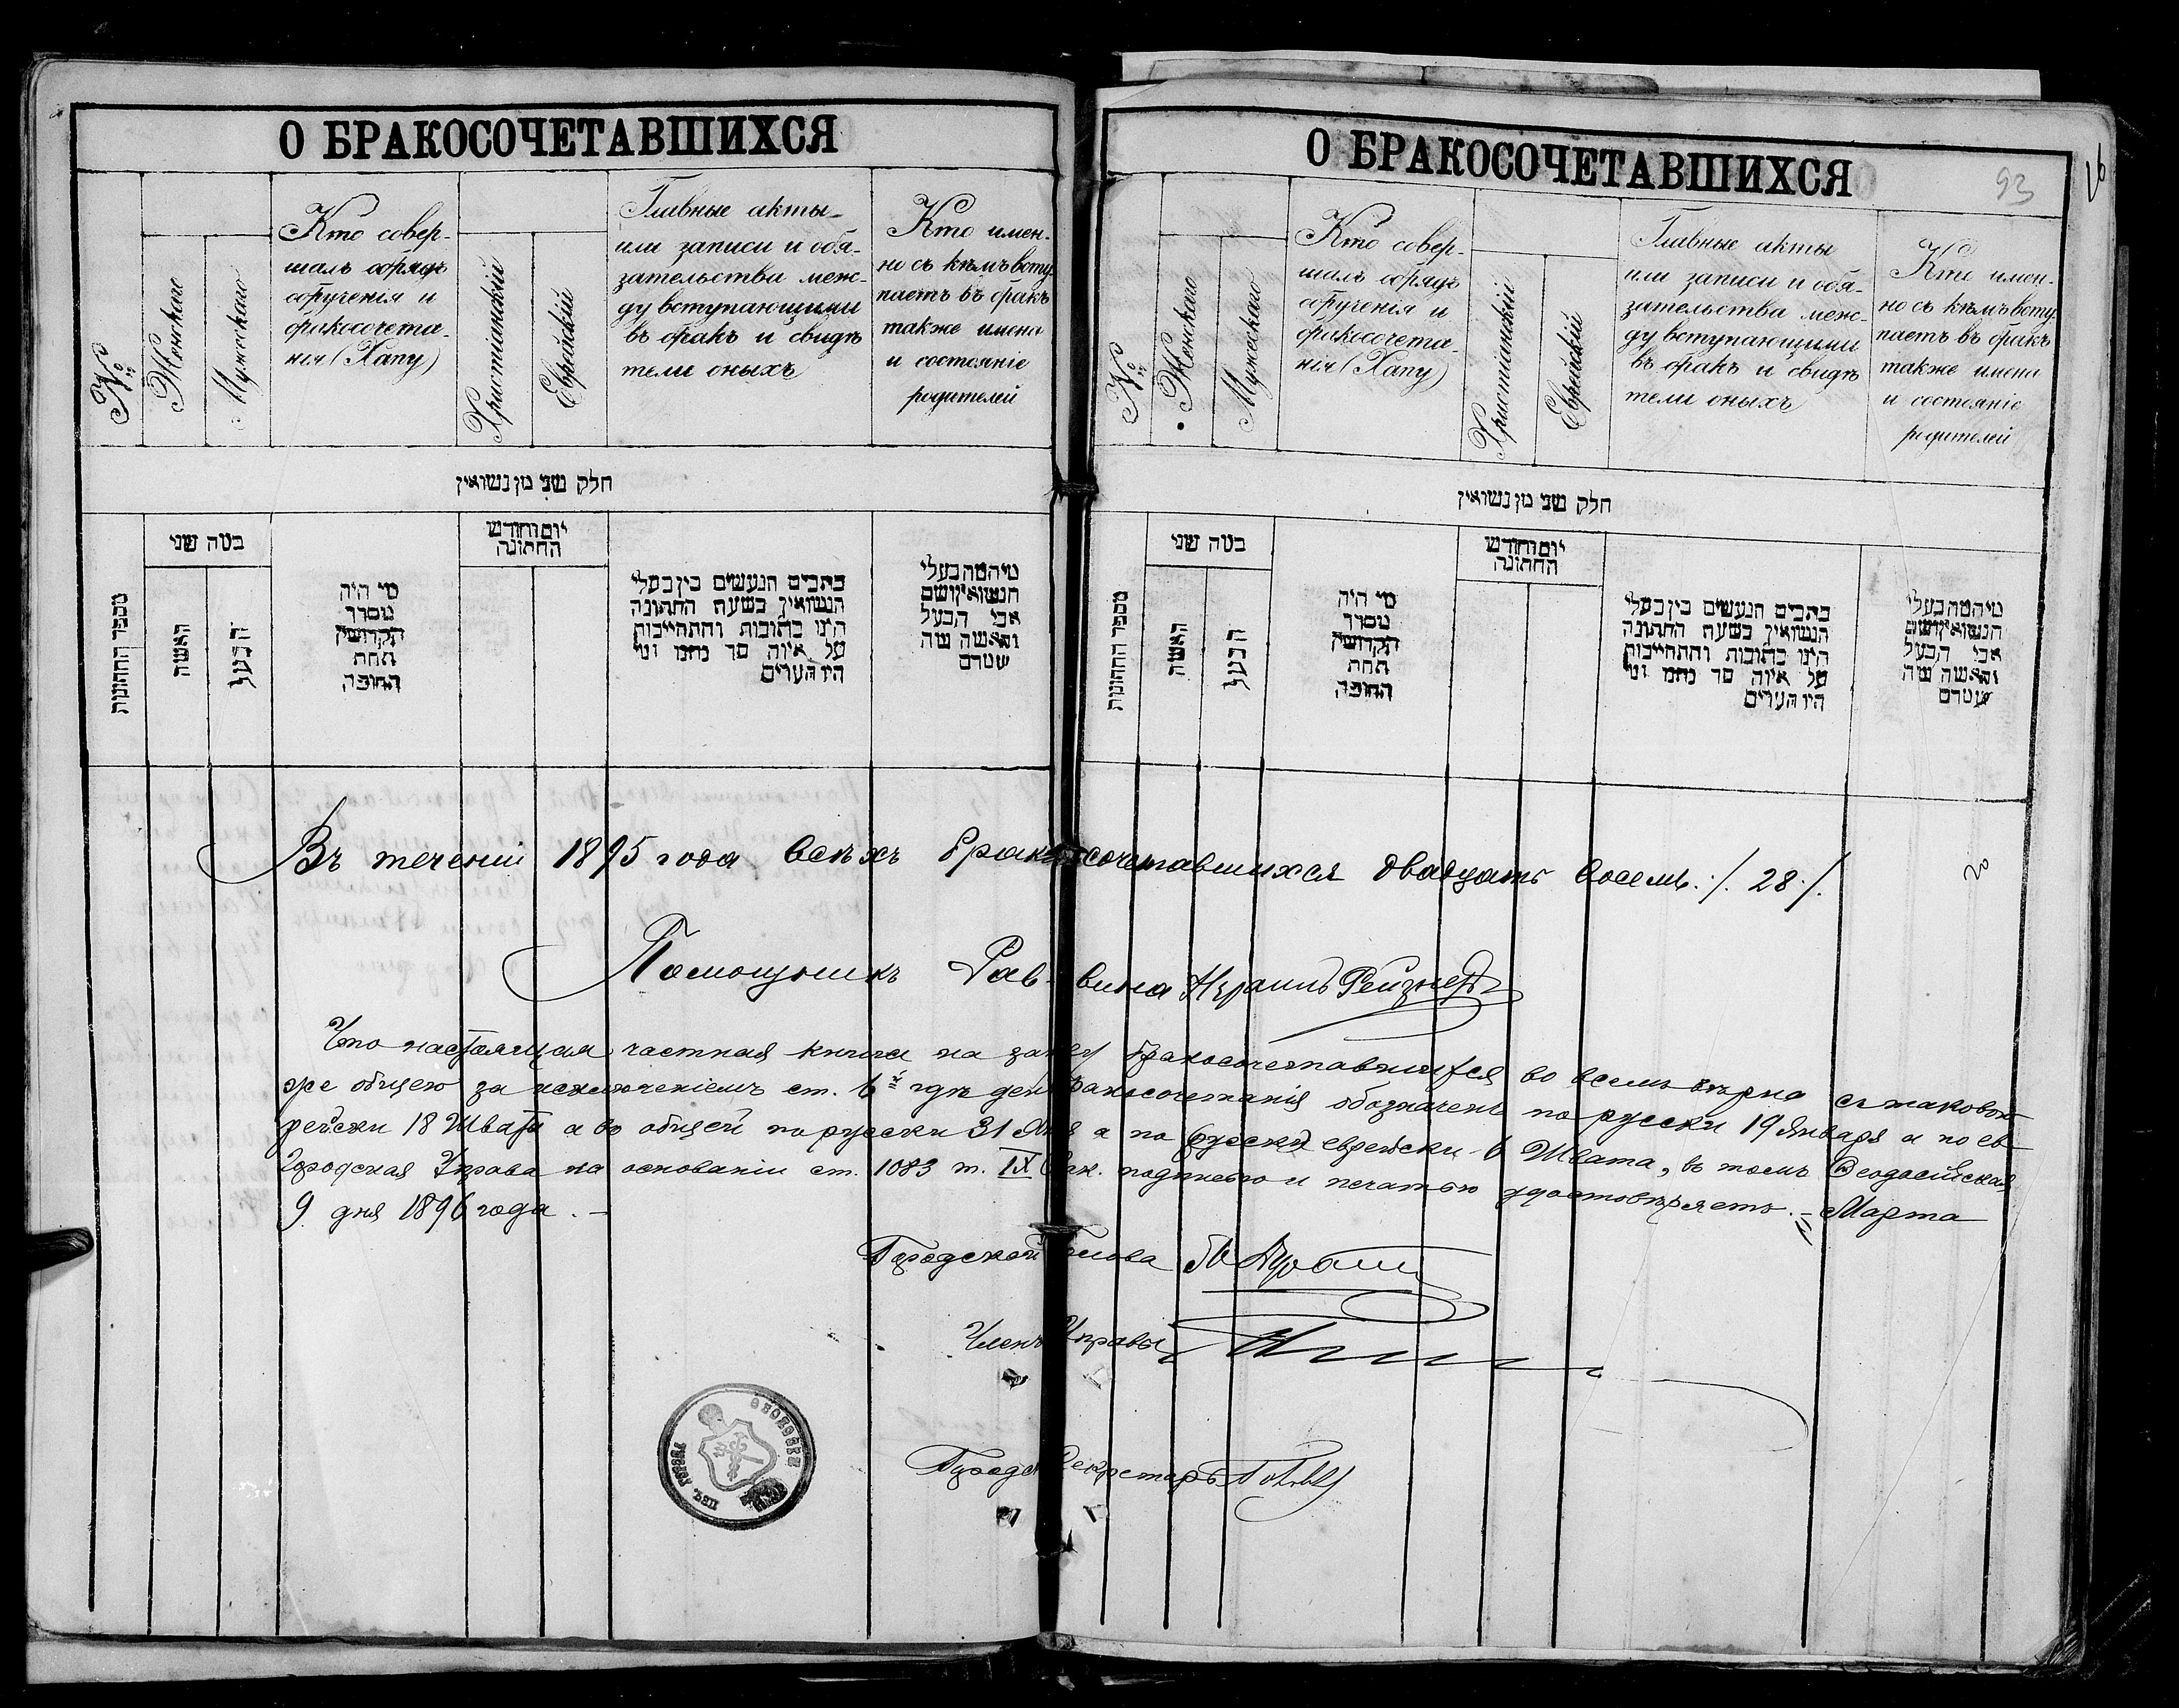 О БРАКОСОЧЕТАВШИХСЯ
№
Женскаго
Мужескаго
Кто совер-
шалъ обрядъ
обрученія и
бракосочета-
нія (Хапу)
Христіанскій
Еврейскій
Главные акты
или записи и обя-
зательства меж-
ду вступающими
въ бракъ и свидѣ
тели оныхъ
Кто имен-
но съ кѣмъ всту-
паетъ въ бракъ
также имена
и состояніе
родителей
חלק שני מן נשואין
מספר החתונות
כמה שני
האשה
הבעל
מי היה
מסדר
הקדושין
תחת
החופה
יום וחודש
החתונה
כתבים הנעשים בין בעלי
הנשואין בשעת החתונה
היינו כתובות והתחייבות
על איזה סך
היו העדים
אבי הבעל
О БРАКОСОЧЕТАВШИХСЯ
93
№
Женскаго
Мужескаго
Кто совер-
шалъ обрядъ
обрученія и
бракосочета-
нія (Хапу)
Христіанскій
Еврейскій
Главные акты
или записи и обя-
зательства меж-
ду вступающими
въ бракъ и свидѣ
тели оныхъ
Кто имен-
но съ кѣмъ всту-
паетъ въ бракъ
также имена
и состояніе
родителей
חלק שני מן נשואין
מספר החתונות
כמה שני
האשה
הבעל
מי היה
מסדר
הקדושין
תחת
החופה
יום וחודש
החתונה
כתבים הנעשים בין בעלי
הנשואין בשעת החתונה
היינו כתובות והתחייבות
על איזה סך
היו העדים
אבי הבעל
Въ теченіи 1895 года всѣхъ бракосочетавшихся двадцать восемь ./. 28 ./.
Помощникъ Раввина Израиль Рейзнеръ
Что настоящая частная книга на запис бракосочетавшихся во всемъ вѣрна съ таковой
же общею за исключеніемъ ст. 6й гдѣ день бракосочетанія обозначенъ по русски 19 Января а по ев-
рейски 18 Швата а во общей по русски 31 Янв а по русски еврейски 6 Швата, въ томъ Ѳеодосійская
Городская Управа на основаніи ст. 1083 т. IX Зак. подписью и печатью удостовѣряетъ. – Марта
9 дня 1896 года. –
Городской Голова
Членъ Управы
Городск Секретарь